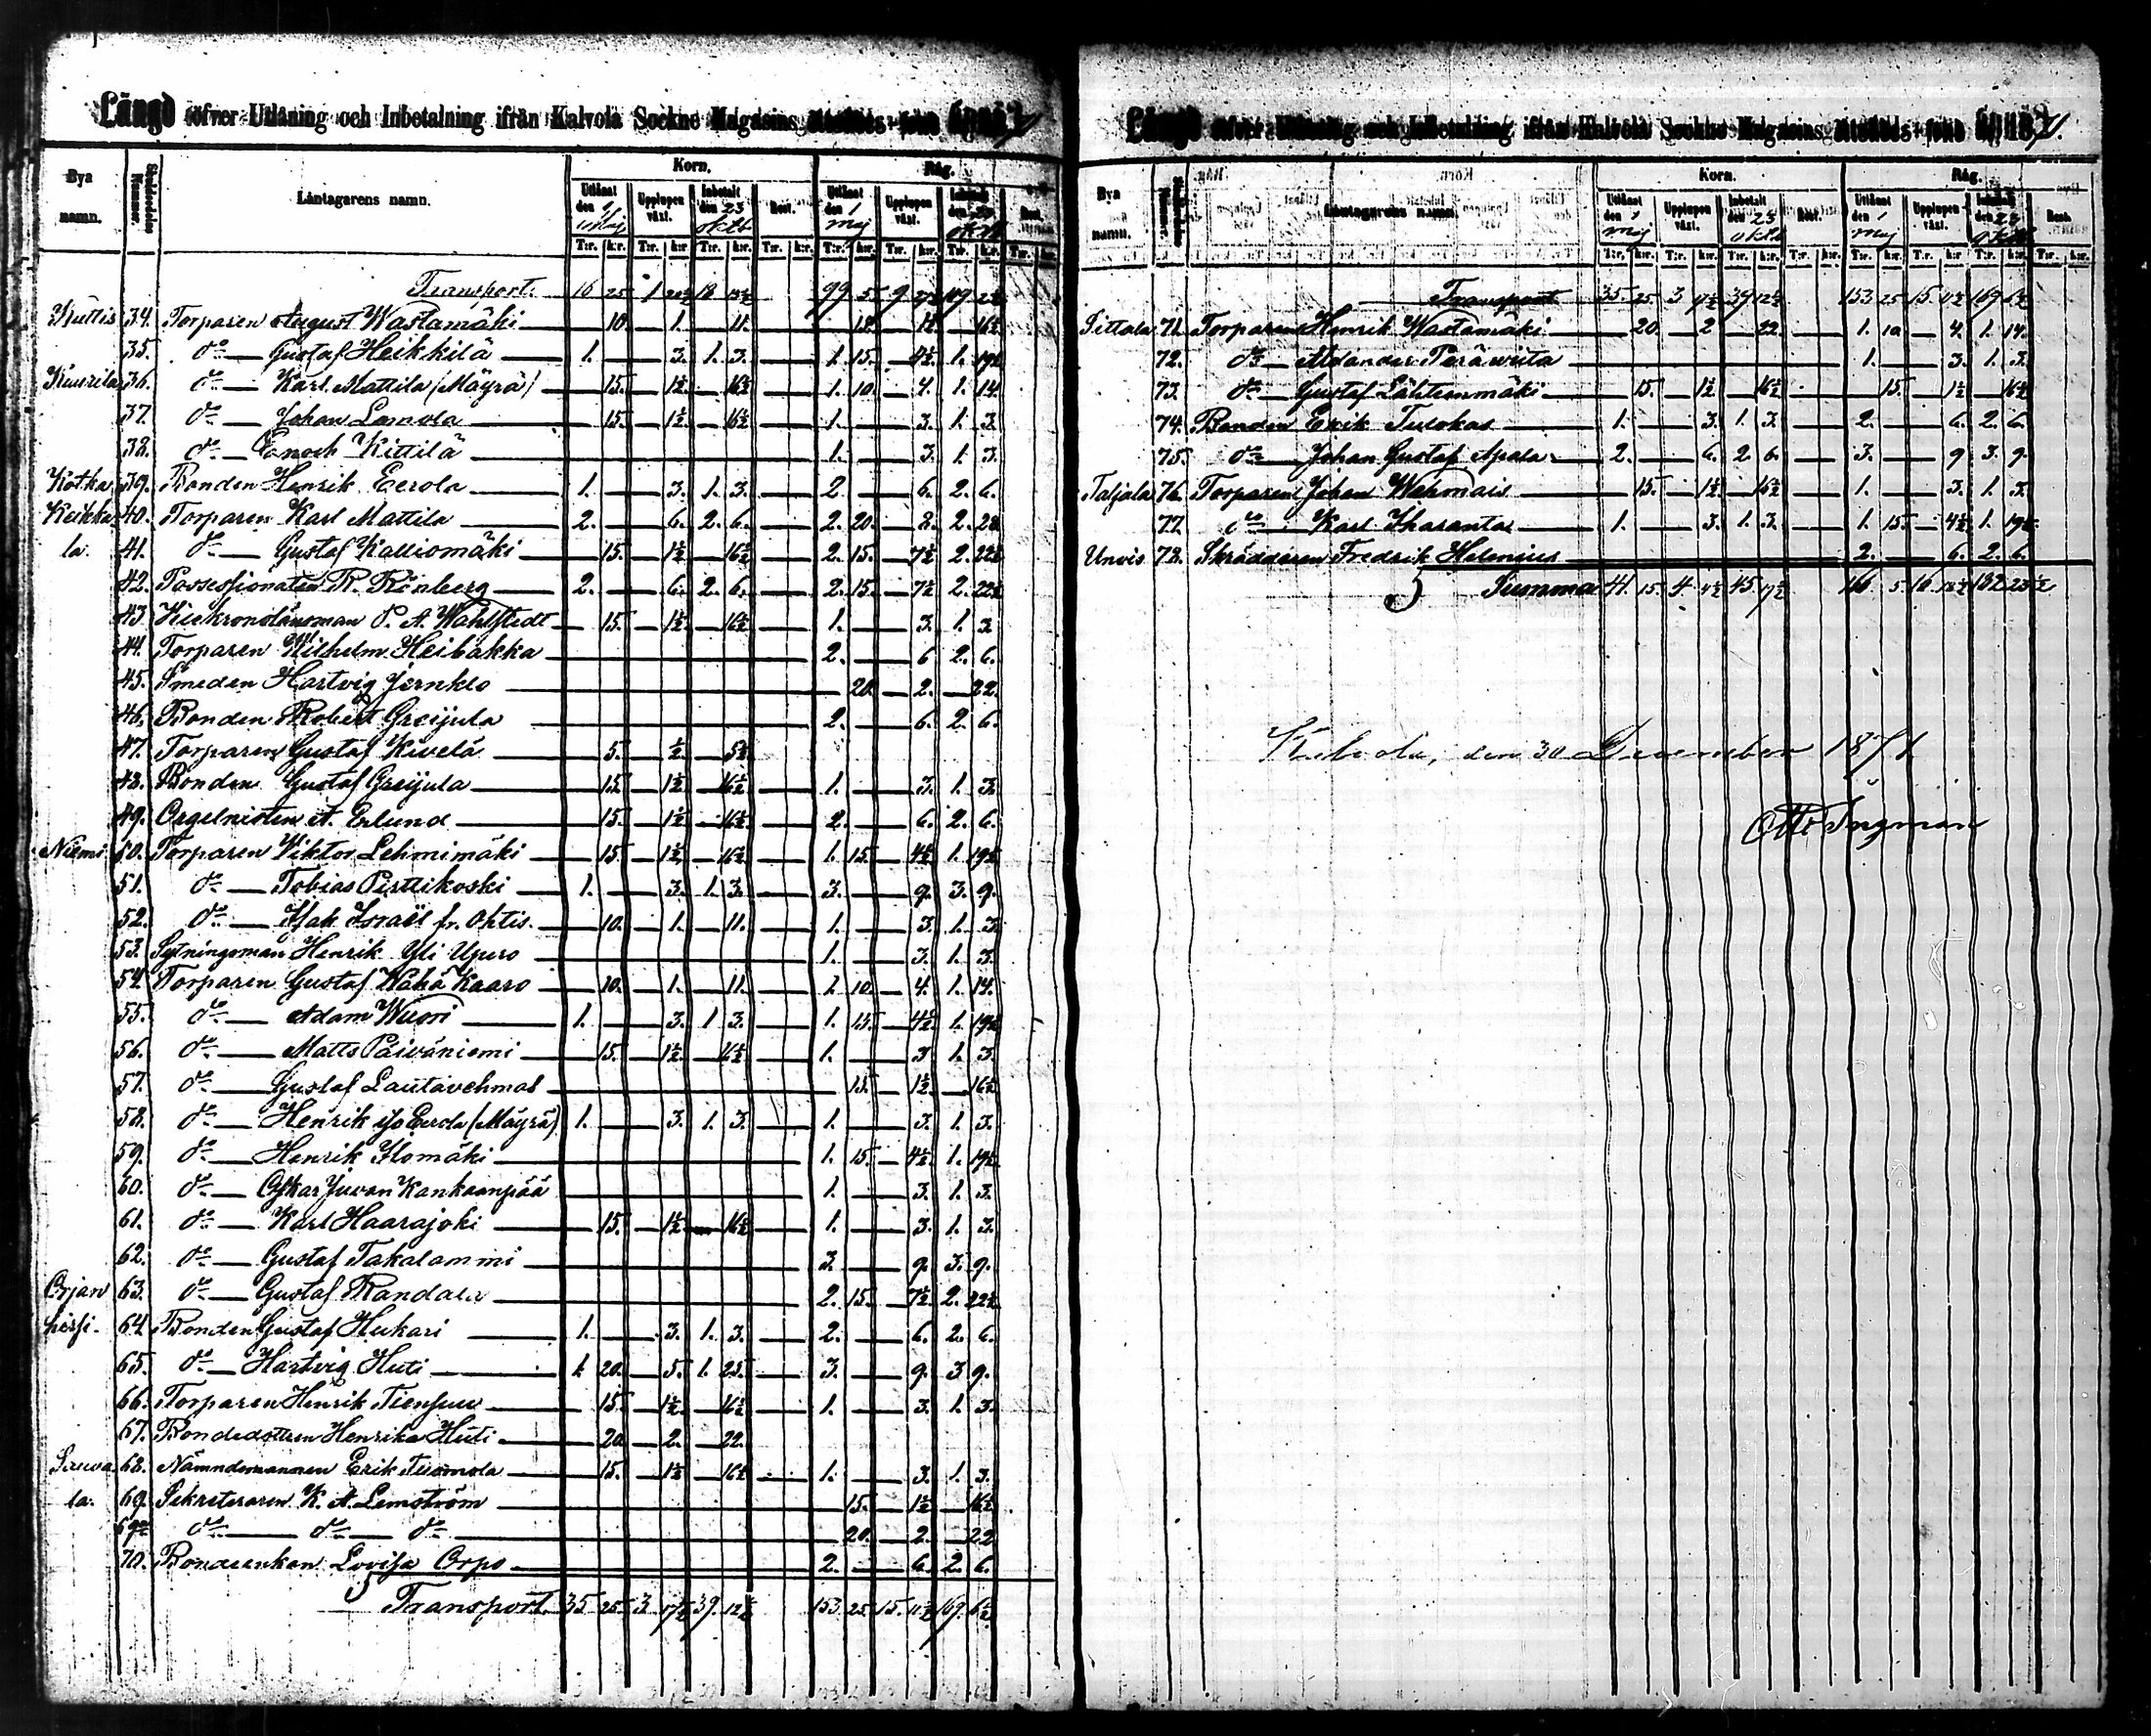 Längd öfver Utlåning och Inbetalning ifrån Kalvola Sockne Magasins
Bya namn. Låntagarens namn. Korn. Råg.
Utlånt den 1 Maj Upplupen växt. Inbetalt den 23 oktb Rest. Utlånt den 1 Maj Upplupen växt. Inbetalt den 23 oktb Rest.
T:r. k:r. T:r. k:r. T:r. k:r. T:r. k:r. T:r. k:r. T:r. k:r. T:r. k:r. T:r. k:r.
Transport. 16 25 1 99 5 9 109
34. Torparen August Wastamäki 10. 1. 11.
35. d:o Gustaf Heikkilä 1. 3. 1. 3. 1. 15. 4½ 1. 19½
36. d:o Karl Mattila (Mäyrä) 15. 1½ 16½ 1. 10. 4. 1. 14.
37. d:o Johan Lemola 15. 1½ 16½ 1. 3. 1. 3.
38. d:o Enoch Kittilä 1. 3. 1. 3.
Kotka 39. Bonden Henrik Eerola 1. 3. 1. 3. 2. 6. 2. 6.
Keikka 40. Torparen Karl Mattila 2. 6. 2. 6. 2. 20. 8. 2. 28
la. 41. d:o Gustaf Kalliomäki 15. 1½ 16½ 2. 15. 7½ 2. 22½
42. Possessionaten R. Rönberg 2. 6. 2. 6. 2. 15. 7½ 2. 22½
43. P. A. Wahlstedt 15. 1½ 16½ 1. 3. 1. 3
44. Torparen Wilhelm Heibakka 2. 6 2. 6.
45. Smeden Hartvig Jernklo 20. 2. 22.
46. Bonden Robert Greijula 2. 6. 2. 6.
47. Torparen Gustaf Kivelä 5. ½ 5½
48. Bonden Gustaf Greijula 15. 1½ 16½ 1. 3. 1. 3
49. Orgelnisten A. Erlund 15. 1½ 16½ 2. 6. 2. 6.
Niemi 50. Torparen Viktor Lehmimäki 15. 1½ 16½ 1. 15. 4½ 1. 19½
51. d:o Tobias Pirttikoski 1. 3. 1. 3. 3. 9. 3. 9.
52. d:o Isak Israël fr. Ohtis. 10. 1. 11. 1. 3. 1. 3.
53. Sytningsman Henrik Yli 1. 3. 1. 3.
54. Torparen Gustaf Wähä Kaaro 10. 1. 11. 1. 10. 4. 1. 14.
55. d:o Adam Wuori 1. 3. 1 3. 1. 15. 4½ 1. 19½
56. d:o Matts Päiväniemi 15. 1½ 16½ 1. 3 1. 3.
57. d:o Gustaf Lautavehmas 15. 1½ 16½
58. d:o Henrik Eerola (Mäyrä) 1. 3. 1. 3. 1. 3. 1. 3.
59. d:o Henrik Ilomäki 1. 15. 4½ 1. 19½
60. d:o Oskar Juvan Kankaanpää 1. 3. 1. 3.
61. d:o Karl Haarajoki 15. 1½ 16½ 1. 3. 1. 3.
62. d:o Gustaf Takalammi 3. 9. 3. 9.
Orjan 63. d:o Gustaf Randala 2. 15. 7½ 2. 22½
hirsi. 64. Bonden Gustaf Hukari 1. 3. 1. 3. 2. 6. 2. 6.
65. d:o Hartvig Huti 1. 20. 5. 1. 25. 3. 9. 3 9.
66. Torparen Henrik Tiensuu 15. 1½ 16½ 1. 3. 1. 3.
67. Bondedottren Henrika Huti 20. 2. 22.
Sauva 68. Nämndemannen Erik Tuomola 15. 1½ 16½ 1. 3. 1. 3.
la. 69. Sekreteraren K. A. Lemström 15. 1½ 16½
d:o d:o d:o 20. 2. 22
70. Bondeenkan Lovisa Orpo 2. 6. 2. 6.
Transport. 35 25 3 17½ 39. 12½ 153 25 15. 11½ 169. 6½
Längd öfver Utlåning och Inbetalning ifrån Kalvola Sockne Magasins
Bya namn. Låntagarens namn. Korn. Råg.
Utlånt den 1 Maj Upplupen växt. Inbetalt den 23 oktb Rest. Utlånt den 1 Maj Upplupen växt. Inbetalt den 23 Rest.
T:r. k:r. T:r. k:r. T:r. k:r. T:r. k:r. T:r. k:r. T:r. k:r. T:r. k:r. T:r. k:r.
Transport 35. 25 3 17½ 39 12½ 153 25 15. 11½ 169 6½
Pittala 71. Torparen Henrik Wastamäki 20. 2 22. 1. 10 4. 1. 14.
72. d:o 1. 3. 1. 3.
73. d:o Gustaf Lähteenmäki 15. 1½ 16½ 15. 1½ 16½
74. Bonden Erik Tulokas 1. 3. 1. 3. 2. 6. 2. 6.
75. d:o Johan Gustaf Apala 2. 6. 2 6. 3. 9 3. 9.
Taljala 76. Torparen Johan Wehmais 15. 1½ 16½ 1. 3. 1. 3.
77. d:o Karl Iharanta 1. 3. 1. 3. 1. 15. 4½ 1. 19½
78. Skräddaren Fredrik Helenius 2. 6. 2. 6.
Summa 41. 15. 4 4½ 45. 17½ 166 5. 16 18½ 182 23½
Kalvola, den 30 December 1871
Otto Ingman